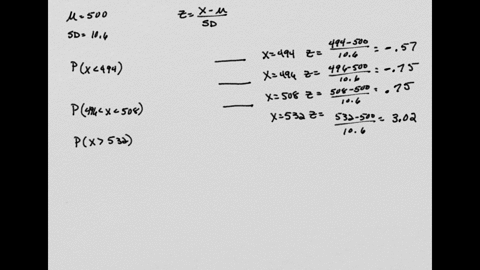 μ = 500
SD = 10.6
z = (x - μ) / SD
P(x < 494)
P(496 < x < 508)
P(x > 532)
x = 494 z = (494 - 500) / 10.6 = -.57
x = 496 z = (496 - 500) / 10.6 = -.75
x = 508 z = (508 - 500) / 10.6 = .75
x = 532 z = (532 - 500) / 10.6 = 3.02